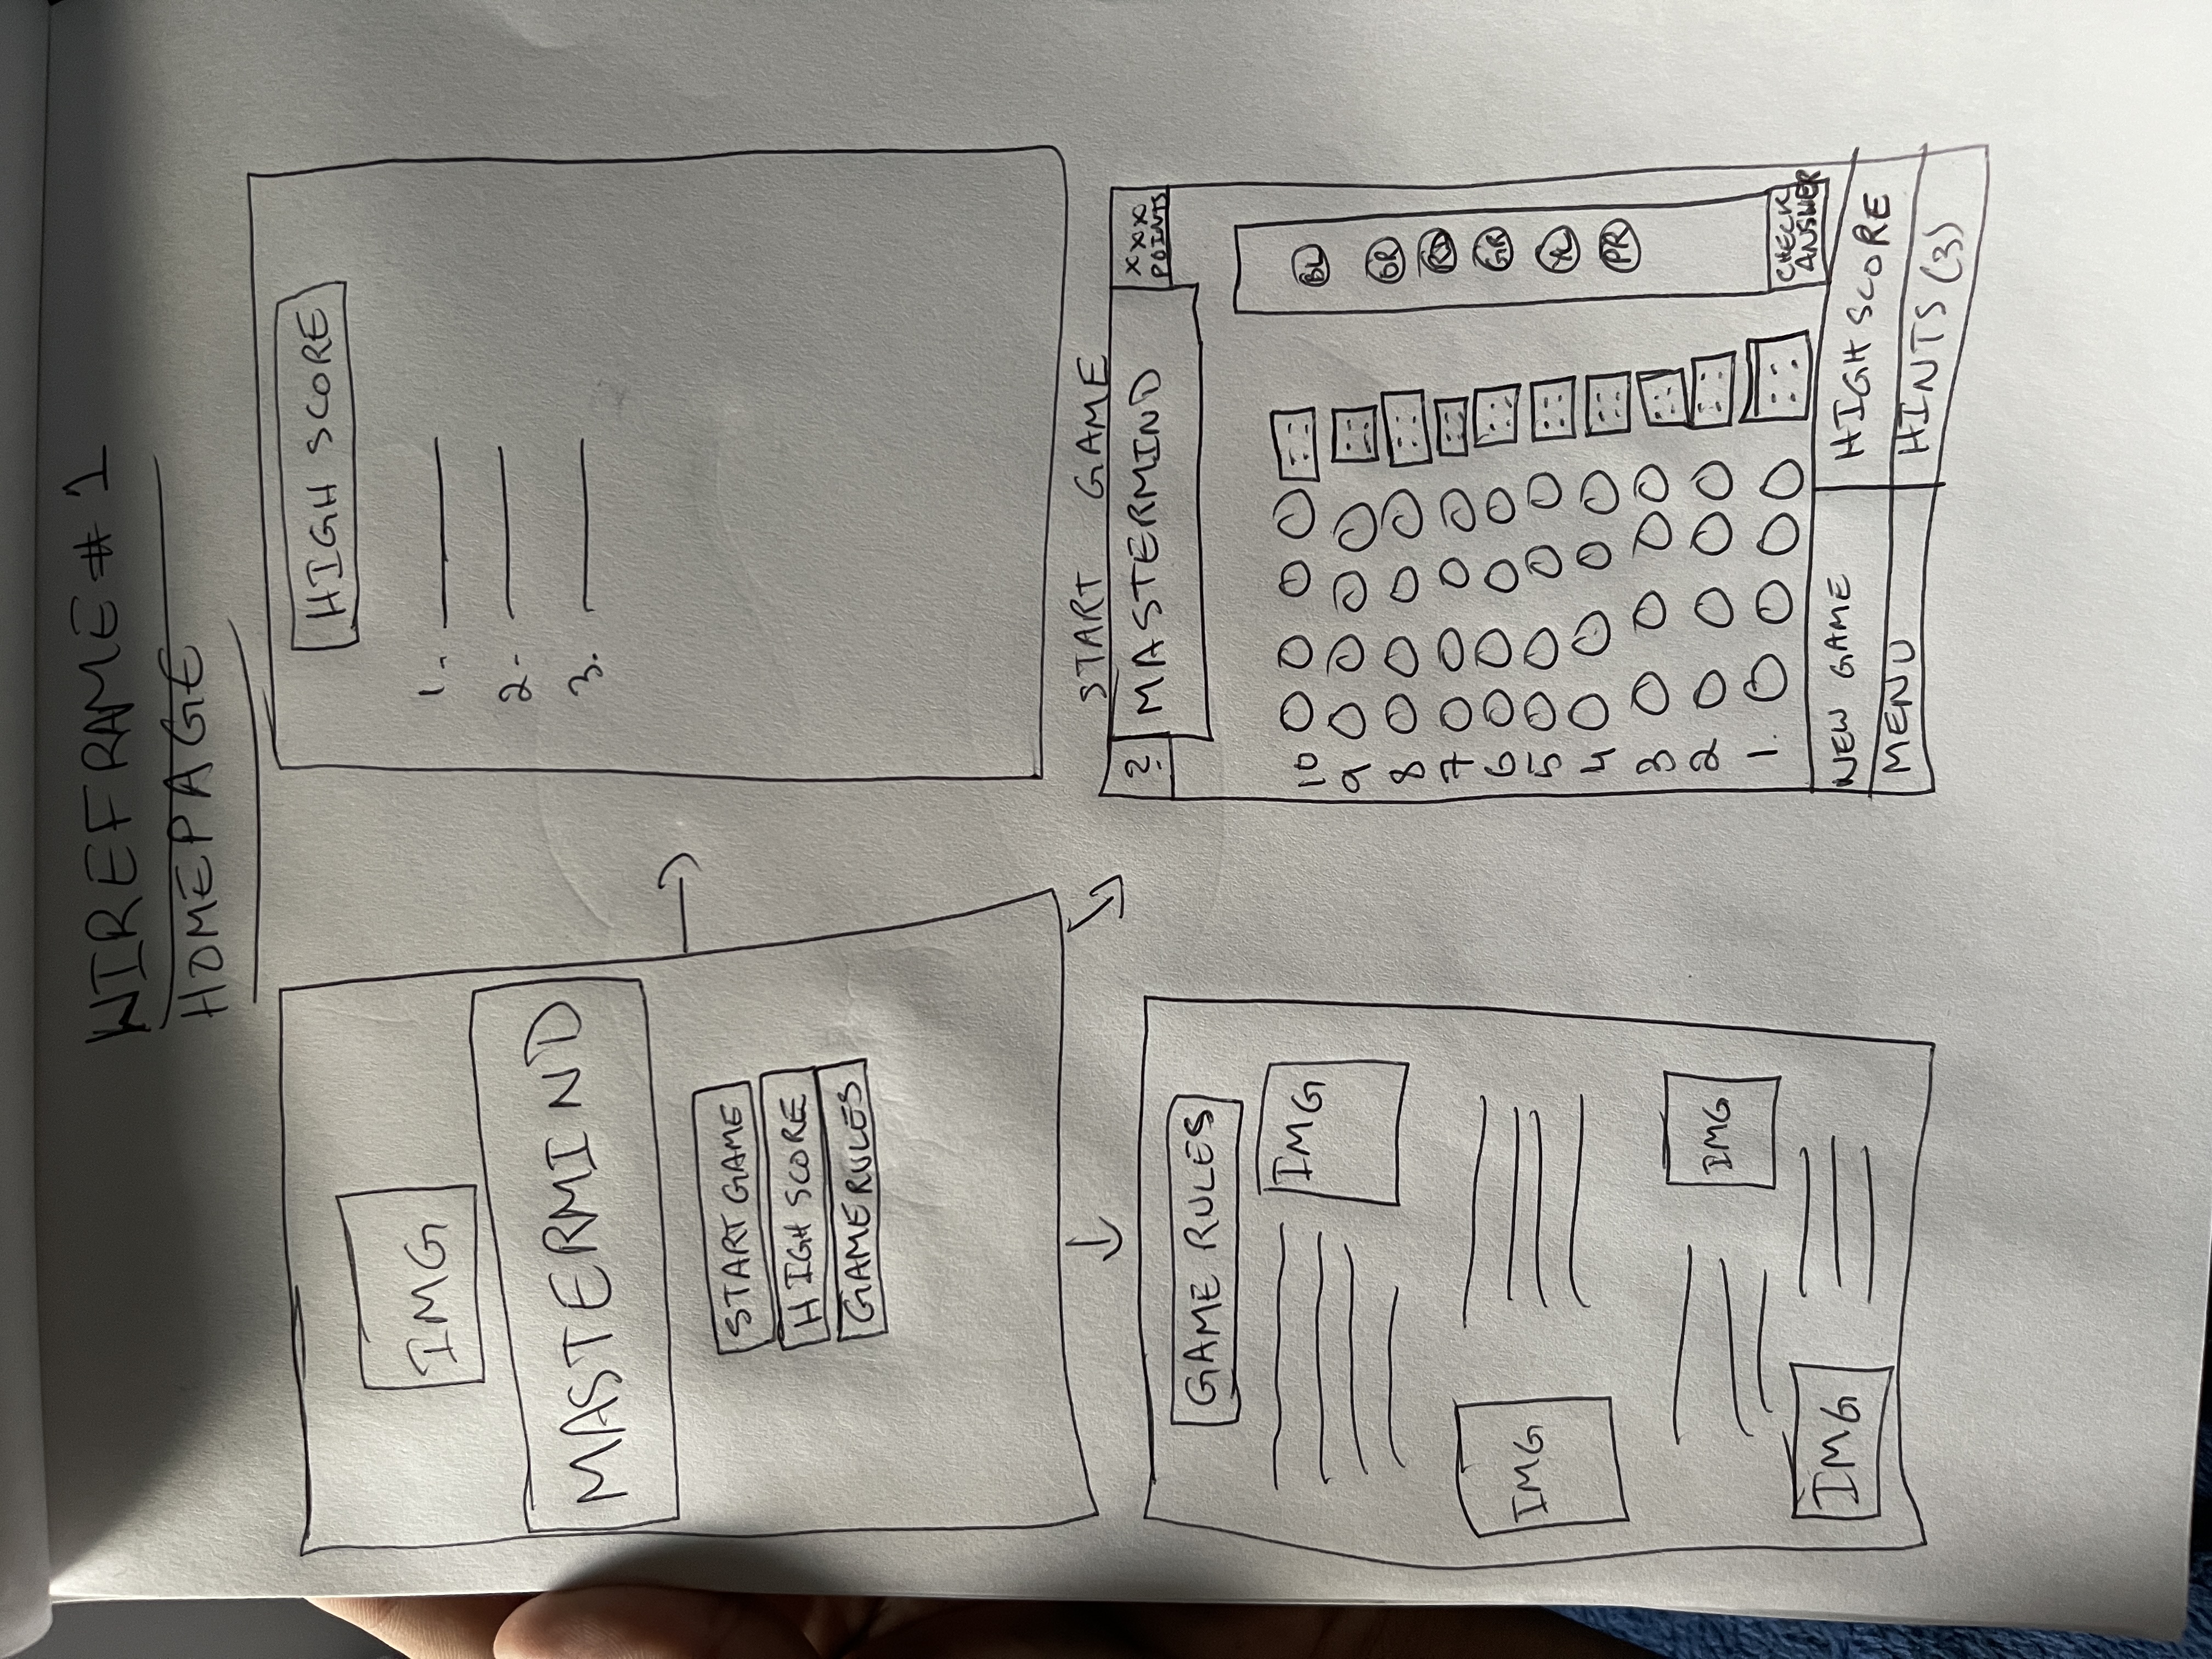 WIREFRAME # 1
HOMEPAGE
IMG
MASTERMIND
START GAME
HIGH SCORE
GAME RULES
HIGH SCORE
1-
2-
3.
GAME RULES
IMG
IMG
IMG
IMG
START GAME
? MASTERMIND XXX
POINTS
10
9
8
7
6
5
4
3
2
1.
BL
OR
RD
GR
YL
PR
CHECK
ANSWER
NEW GAME HIGH SCORE
MENU HINTS (3)